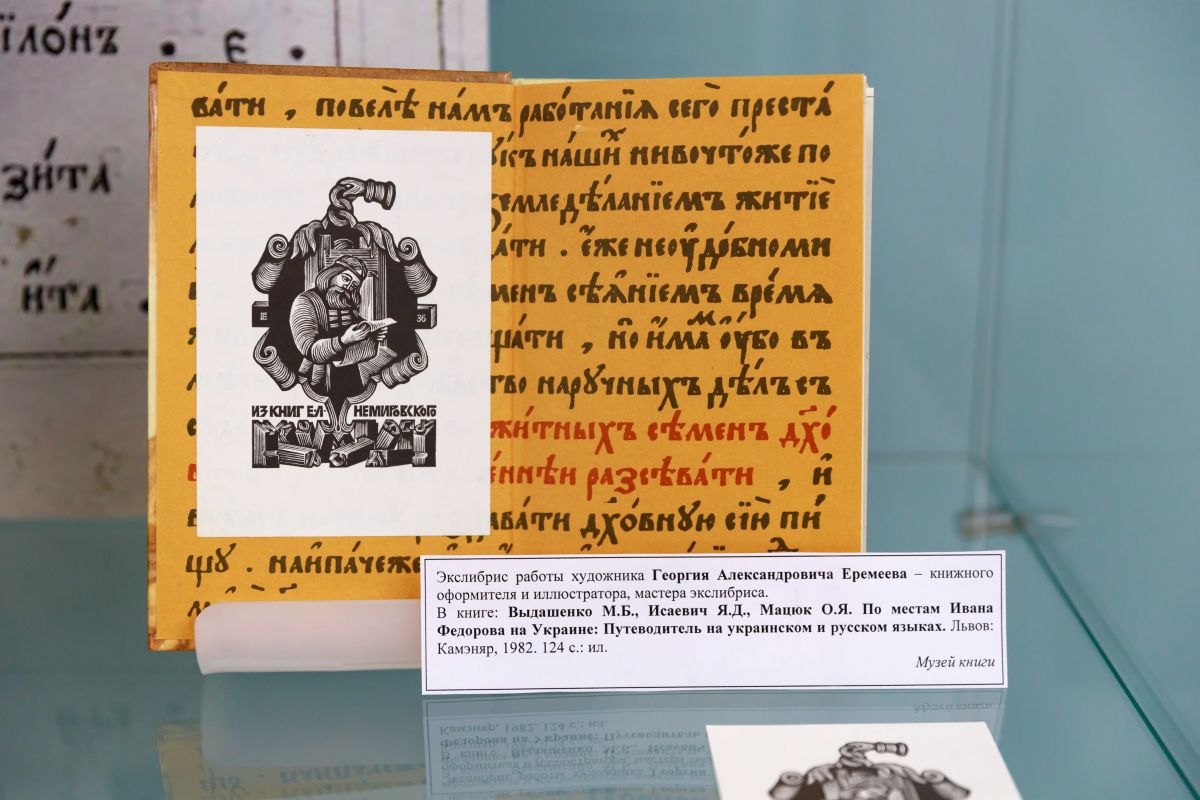 їло́нъ . є .
зи́та
и҆́та .
ва́ти , повелѣ̀ на́мъ рабо́танїѧ сего̀ преста́
къ на́ши нивочтоже по
емледѣ́ланїемъ житїѐ
а́ти . є҆́же неѹдо́бноми
менъ сѣѧнїемъ вре́мѧ
ща́ти , но̀ и҆́мамъ ѹ҆́бо въ
тво нарѹчныхъ дѣ́лъ съ
жи́тныхъ сѣ́менъ дх҃о́
е́ннѣи разсѣва́ти , и҆
ава́ти дх҃о́внѹю сїю пи́
щѹ . наипа́чеже
ИЗ КНИГ ЕЛ- НЕМИРОВСКОГО
Экслибрис работы художника Георгия Александровича Еремеева – книжного
оформителя и иллюстратора, мастера экслибриса.
В книге: Выдашенко М.Б., Исаевич Я.Д., Мацюк О.Я. По местам Ивана
Федорова на Украине: Путеводитель на украинском и русском языках. Львов:
Камэняр, 1982. 124 с.: ил.
Музей книги